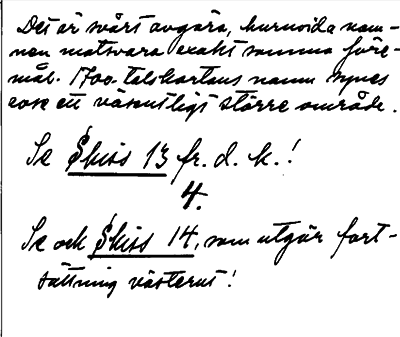 Det är svårt avgöra, huruvida nam-
nen motsvara exakt samma före-
mål. 1700-talskartans namn synes
avse ett väsentligt större område.
Se Skiss 13 fr. d. k.!
4.
Se och Skiss 14, som utgör fort-
sättning västerut!